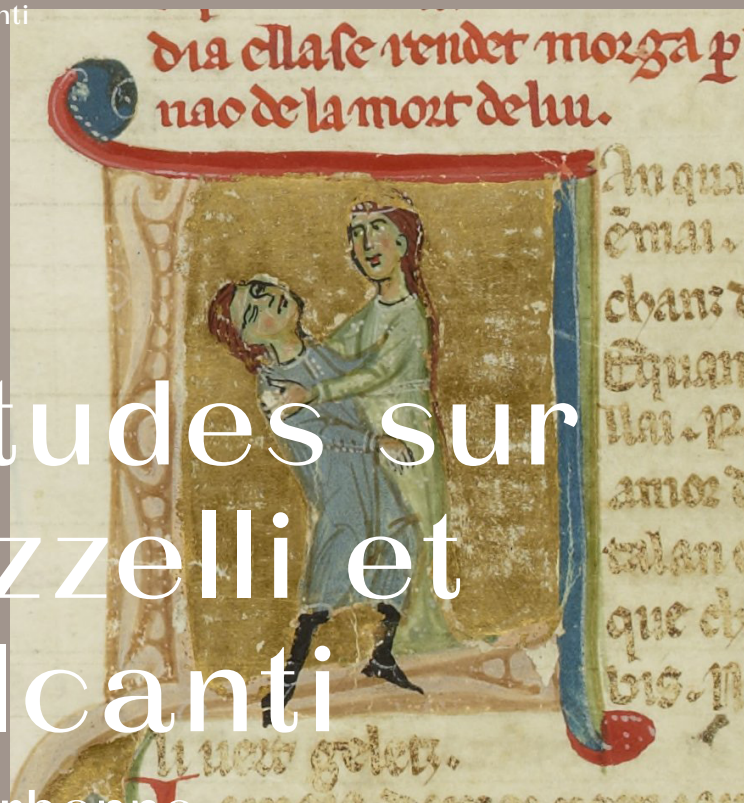 nti
dia ellase rendet morga p
nao de la mort de lui.
An qua
emai.
chanz d
Equan
llai. P
amor d
talan
que ch
vis. M
tudes sur
zzelli et
lcanti
li uers geletz.
rbonne